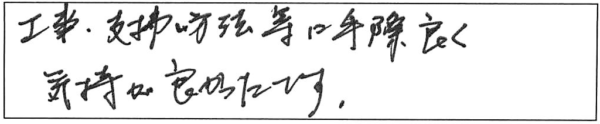 工事、支払い方法等に手際良く
気持が良かったです。